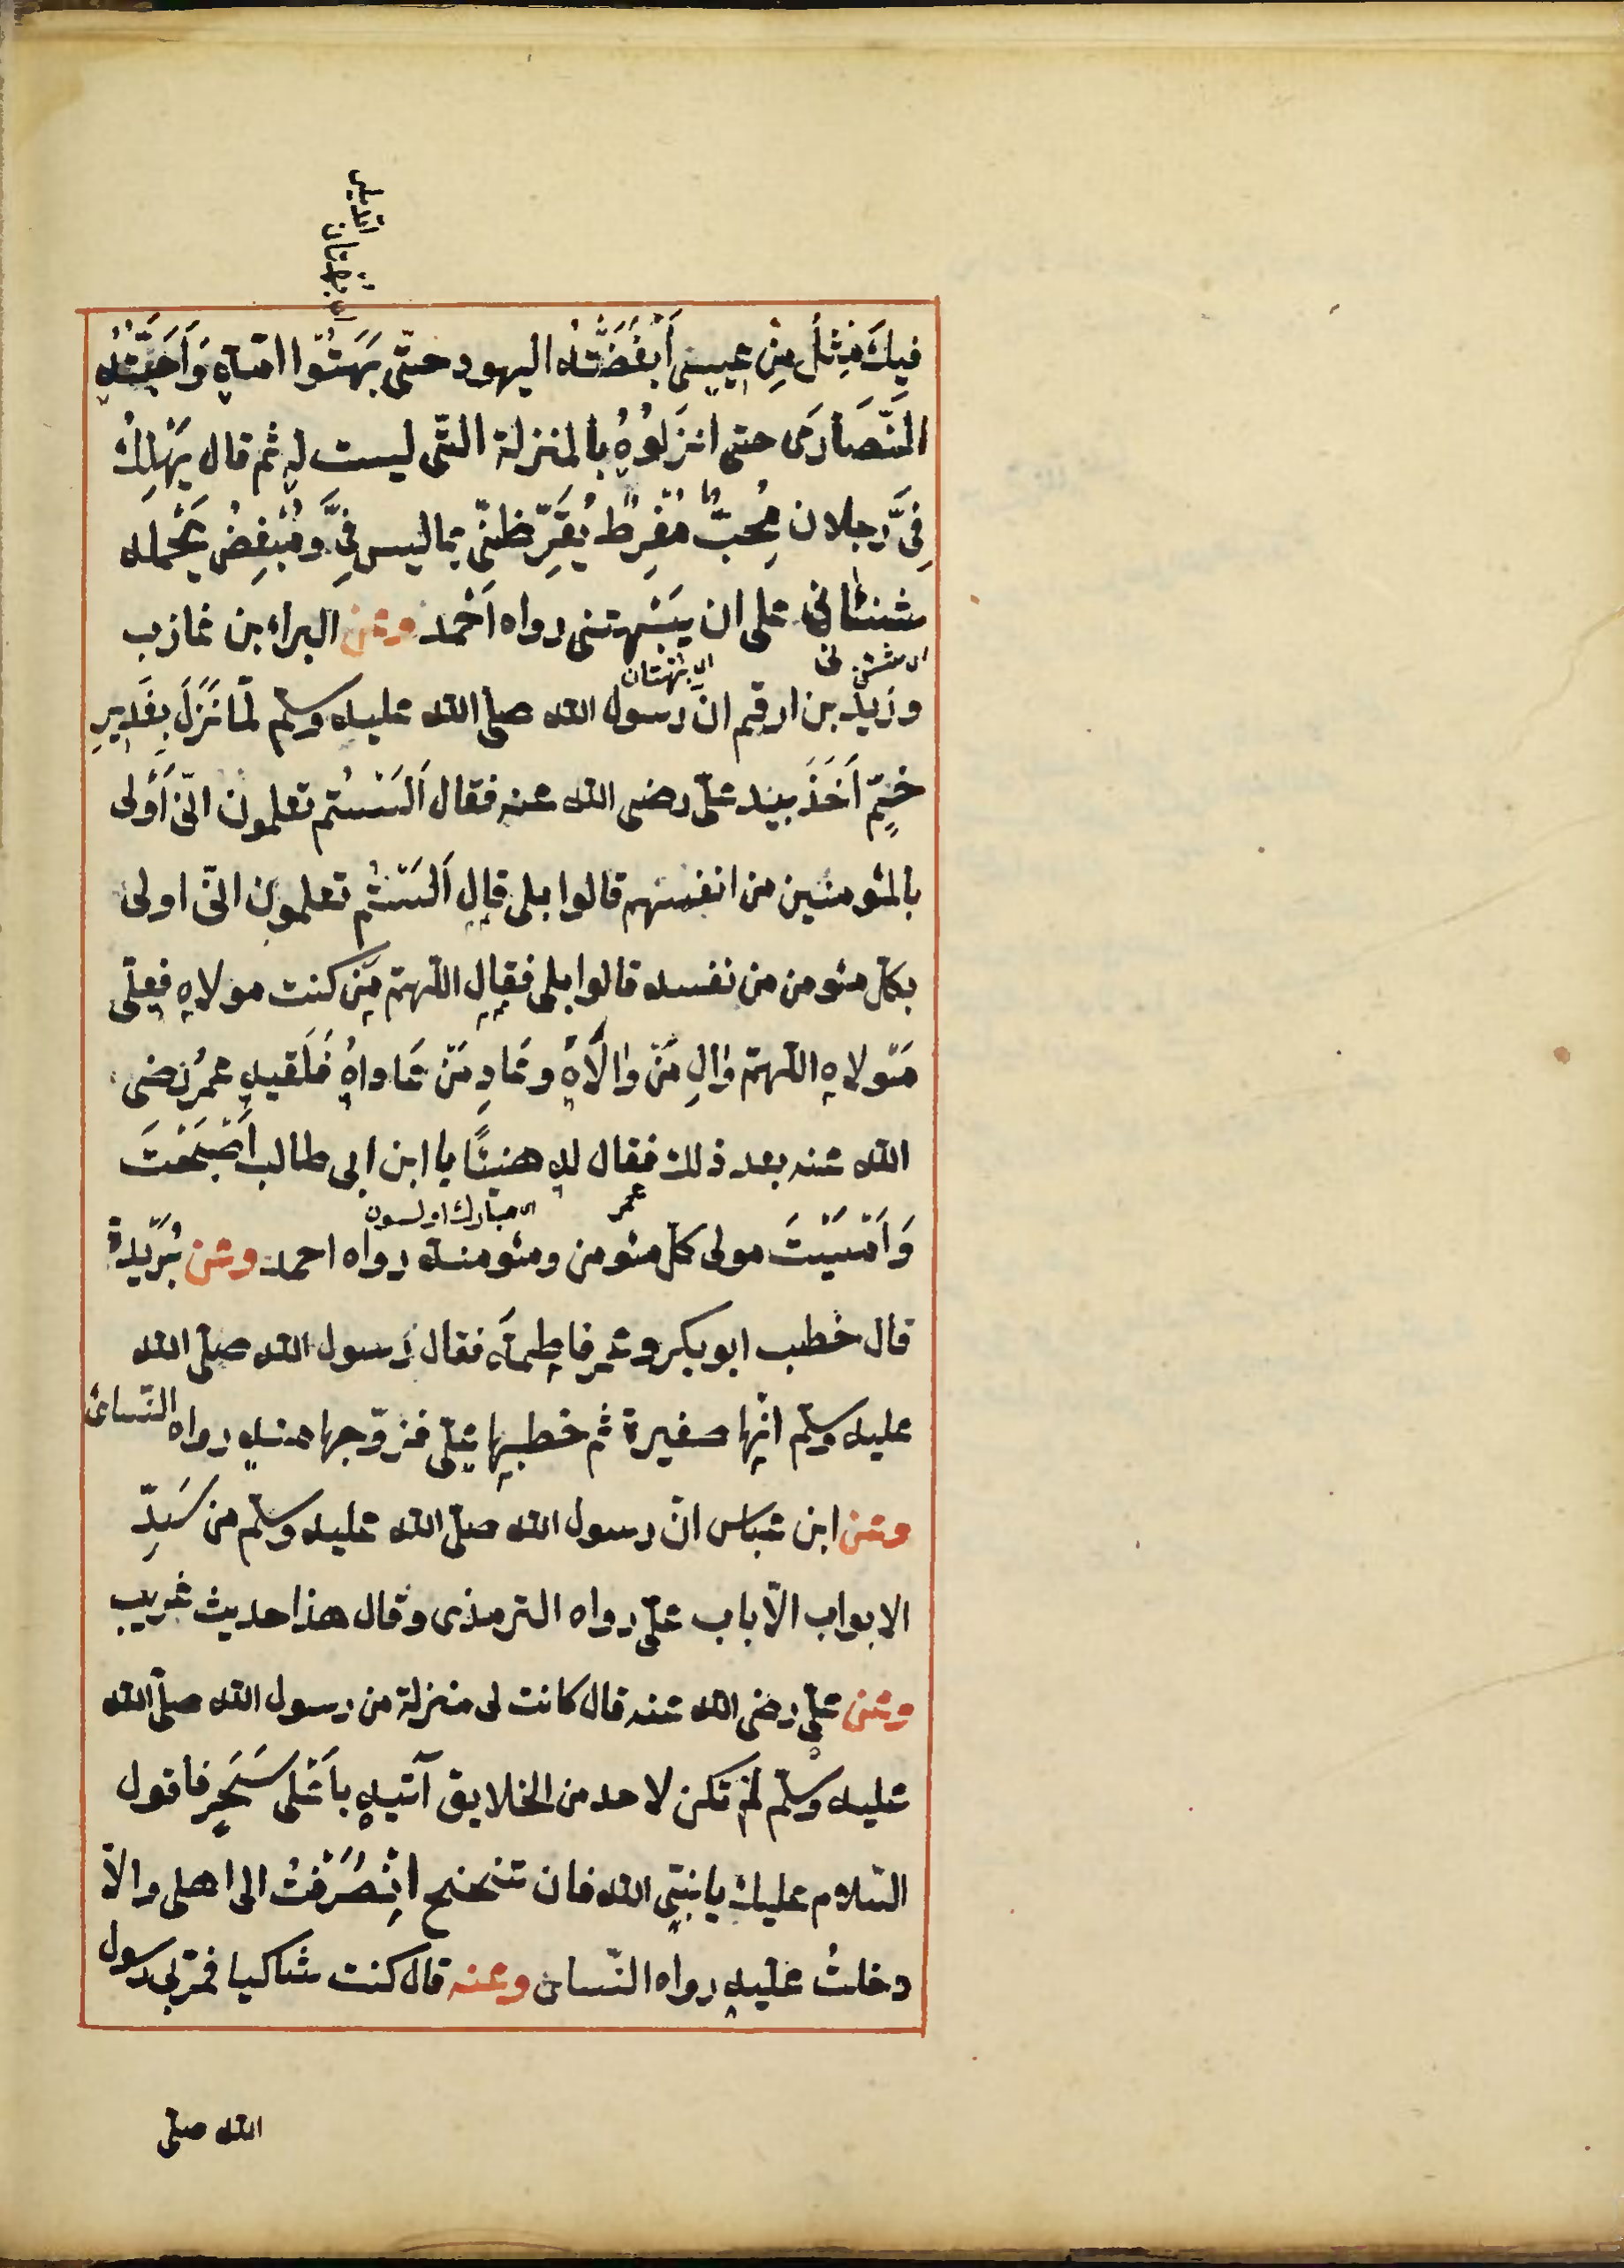 ای بهتان ایتدیلر
فِيكَ مَثَلٌ مِن عِيسى أَبْغَضَتْهُ اليهود حتّى بَهَتُوا امّه وَأَحَبَّتْهُ
النَّصَارَى حتى انزَلُوُهُ بالمنزلة التّى ليست له ثم قال يَهْلِكُ
فِىَّ رجلان مُحِبٌّ مُفْرِطٌ يُقَرِّظنّى بما ليس فِىَّ وَمُبْغِضٌ يَحْمله
شنئانى على ان يبْهتنى رواه أحْمد وعن البراء بن عازب
ای بهتان
وزيد بن ارقم ان رسول الله صلى الله عليه وسلم لمّا نَزَلَ بِغَدِيرِ
خُمٍّ أَخَذَ بيد علىّ رضى الله عنه فقال أَلَسْتُم تعلمون انّى أَوْلى
بالمئومنين من انفسهم قالوا بلى قال أَلَسْتُم تعلمون انّى اولى
بكلّ مئومن من نفسه قالوا بلى فقال اللّهمّ مَن كنت مولاه فعلىّ
مَوْلاه اللّهمّ وَالِ مَنْ والَاهُ وعَادِ مَنْ عَاداهُ فَلَقيه عمرُ رضى
الله عنه بعد ذلك فقال له هنيئًا يا ابن ابى طالب أَصْبَحْتَ
عمر
ای مبارك اولسون
وَأَمْسَيْتَ مولى كلّ مئومن ومئومنة رواه احمد وعن بُرَيْدة
قال خطب ابو بكر وعمر فاطِمةَ فقال رسول الله صلى الله
عليه وسلم انّها صغيرة ثم خطبها علىّ فزوّجها منه رواه النّسائى
وعن ابن عباس انّ رسول الله صلى الله عليه وسلم من سَدِّ
الابواب الّا باب علىّ رواه الترمذى وقال هذا حديث غريب
وعن علىّ رضى الله عنه قال كانت لى منزلة من رسول الله صلى الله
عليه وسلم لَمْ تكن لاحد من الخلايق آتيه بأَعْلى سَحَرٍ فاقول
السّلام عليك يا نبىّ الله فان تنحنح انْصَرَفْتُ الى اهلى والّا
دخلتُ عليه رواه النّسائى وعنه قال كنت شاكيا فمرّ بى رسول
الله صلى